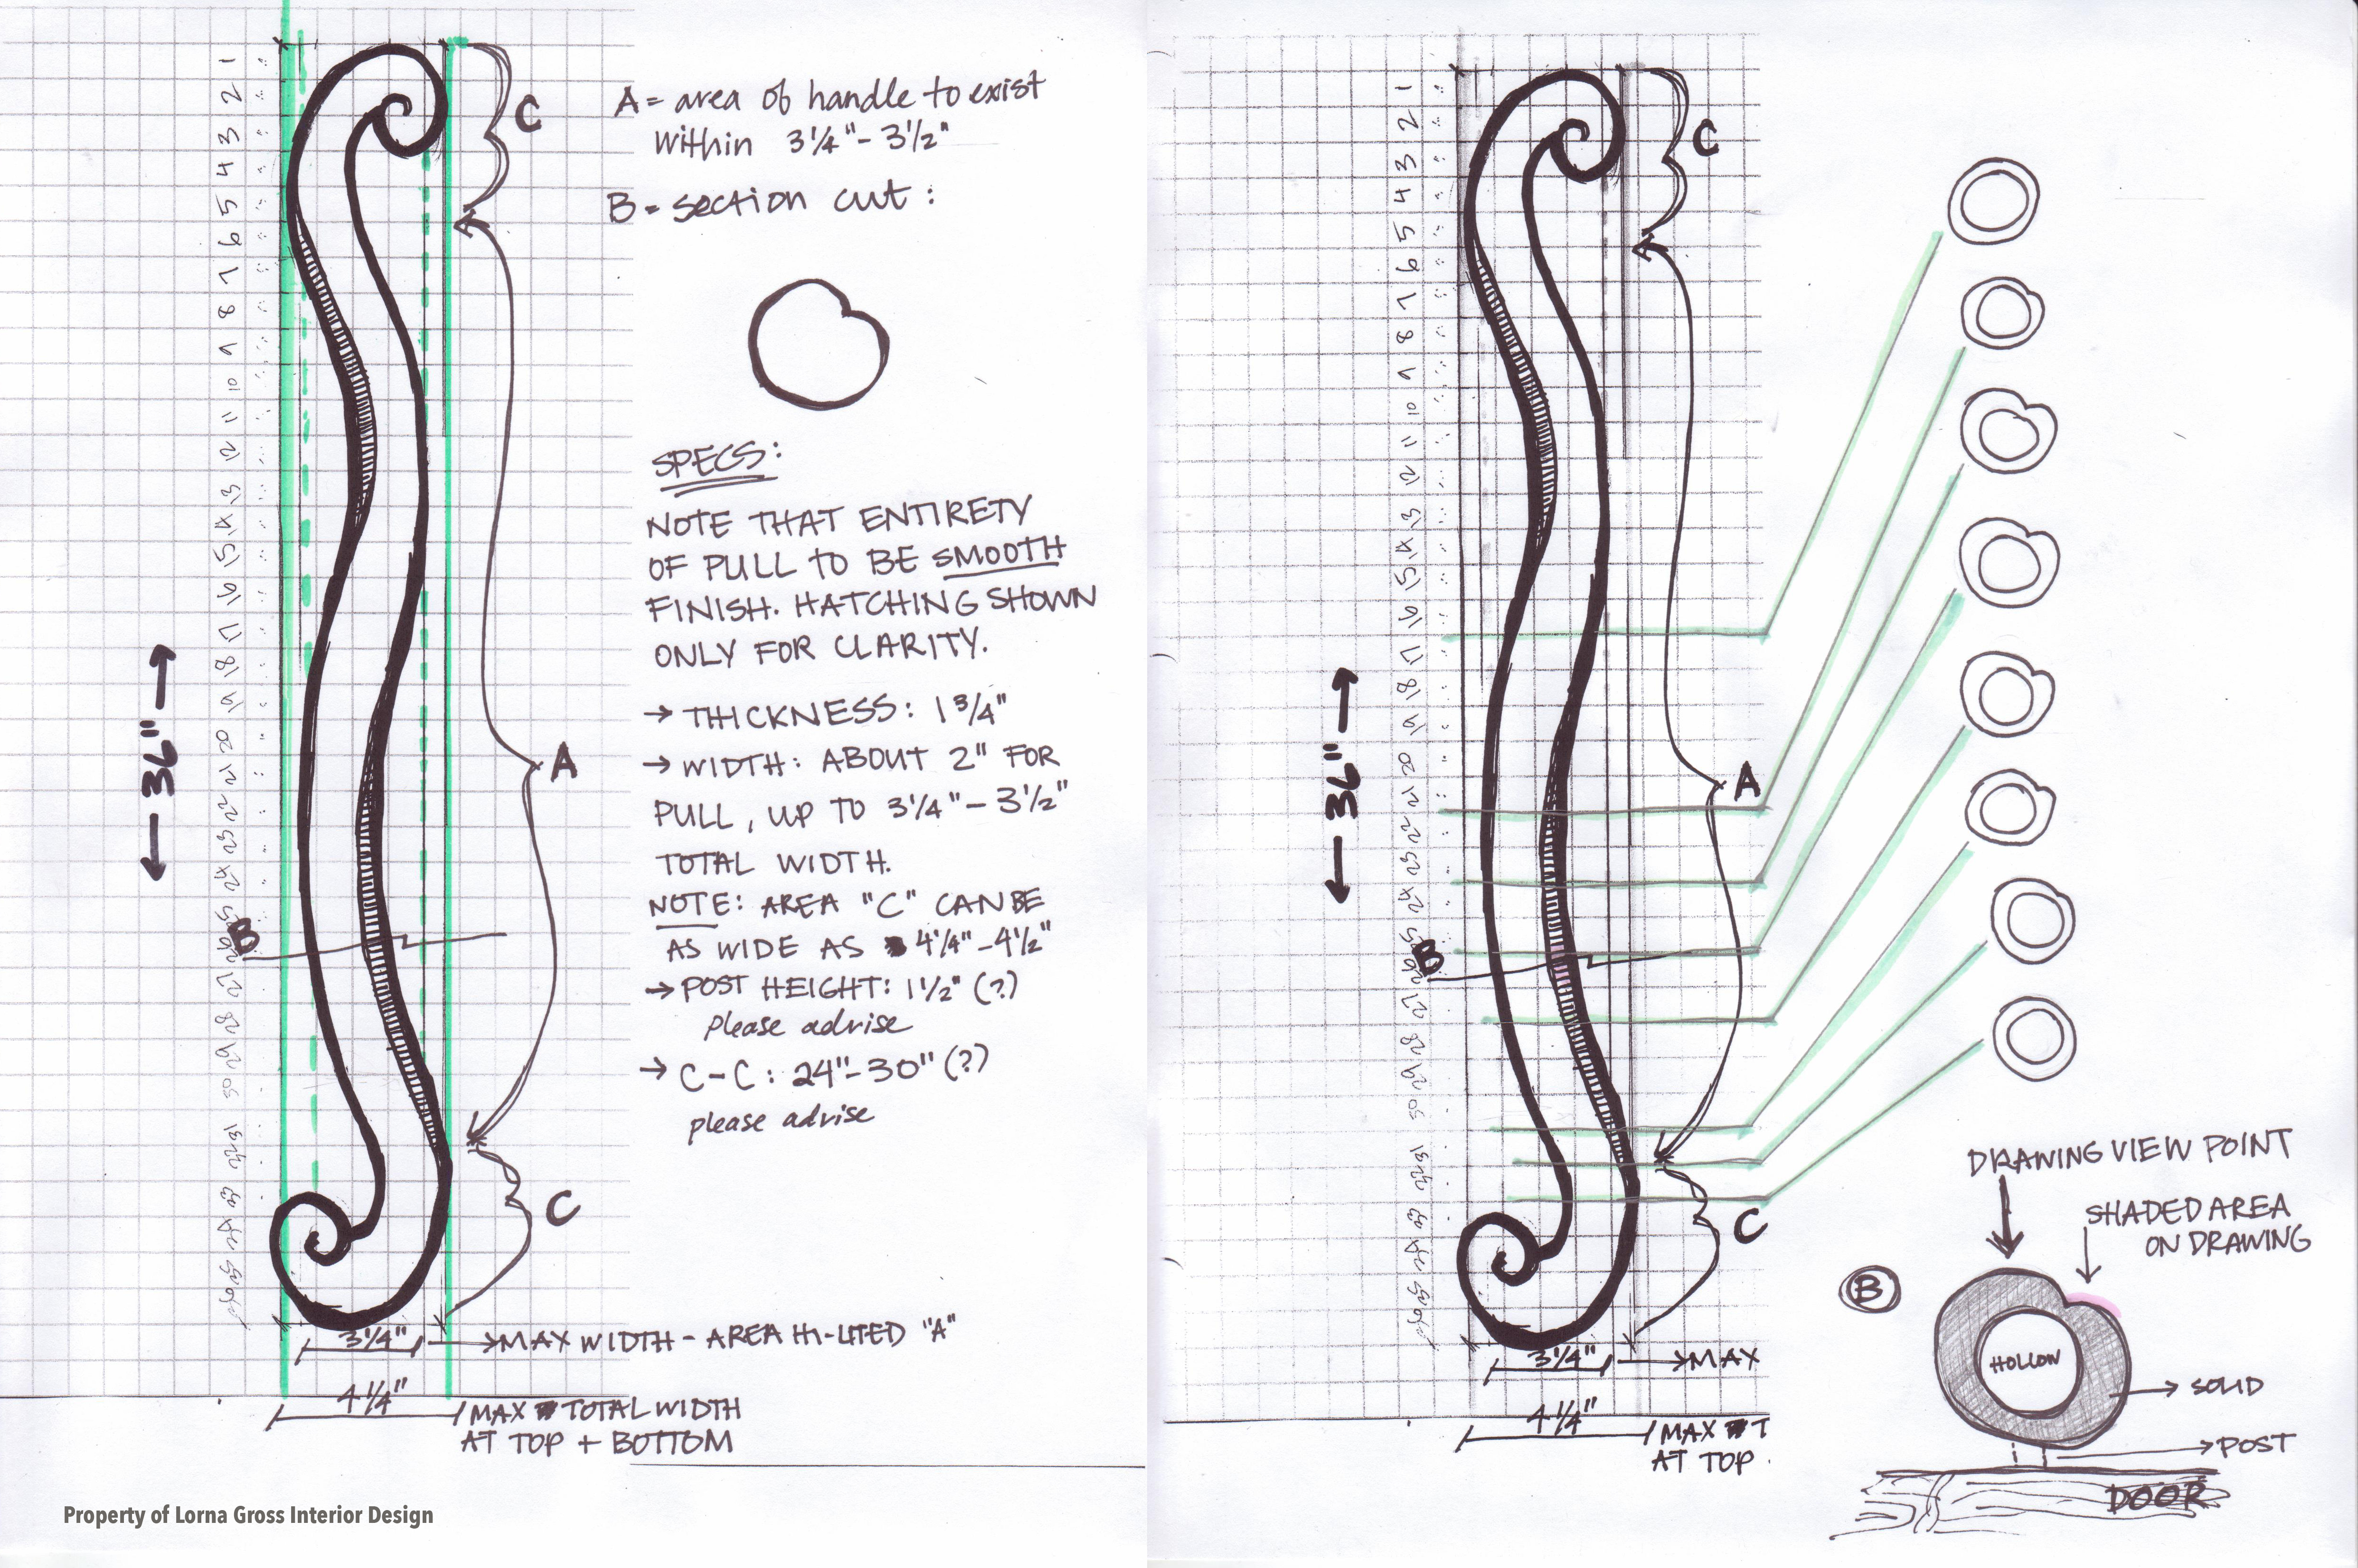 1 2 3 4 5 6 7 8 9 10 11 12 13 14 15 16 17 18 19 20 21 22 23 24 25 26 27 28 29 30 31 32 33 34 35 36
C
A = area of handle to exist
within 3 1/4" - 3 1/2"
B = section cut:
SPECS:
NOTE THAT ENTIRETY
OF PULL TO BE SMOOTH
FINISH. HATCHING SHOWN
ONLY FOR CLARITY.
→ THICKNESS: 1 3/4"
→ WIDTH: ABOUT 2" FOR
PULL, UP TO 3 1/4" - 3 1/2"
TOTAL WIDTH.
NOTE: AREA "C" CAN BE
AS WIDE AS 4 1/4" - 4 1/2"
→ POST HEIGHT: 1 1/2" (?)
please advise
→ C-C: 24"-30" (?)
please advise
← 36" →
A
B
C
3 1/4" → MAX WIDTH - AREA HI-LITED "A"
4 1/4" MAX TOTAL WIDTH
AT TOP + BOTTOM
Property of Lorna Gross Interior Design
1 2 3 4 5 6 7 8 9 10 11 12 13 14 15 16 17 18 19 20 21 22 23 24 25 26 27 28 29 30 31 32 33 34 35 36
C
← 36" →
A
B
C
3 1/4" → MAX
4 1/4" MAX T
AT TOP
DRAWING VIEW POINT
SHADED AREA
ON DRAWING
B
HOLLOW
→ SOLID
→ POST
DOOR